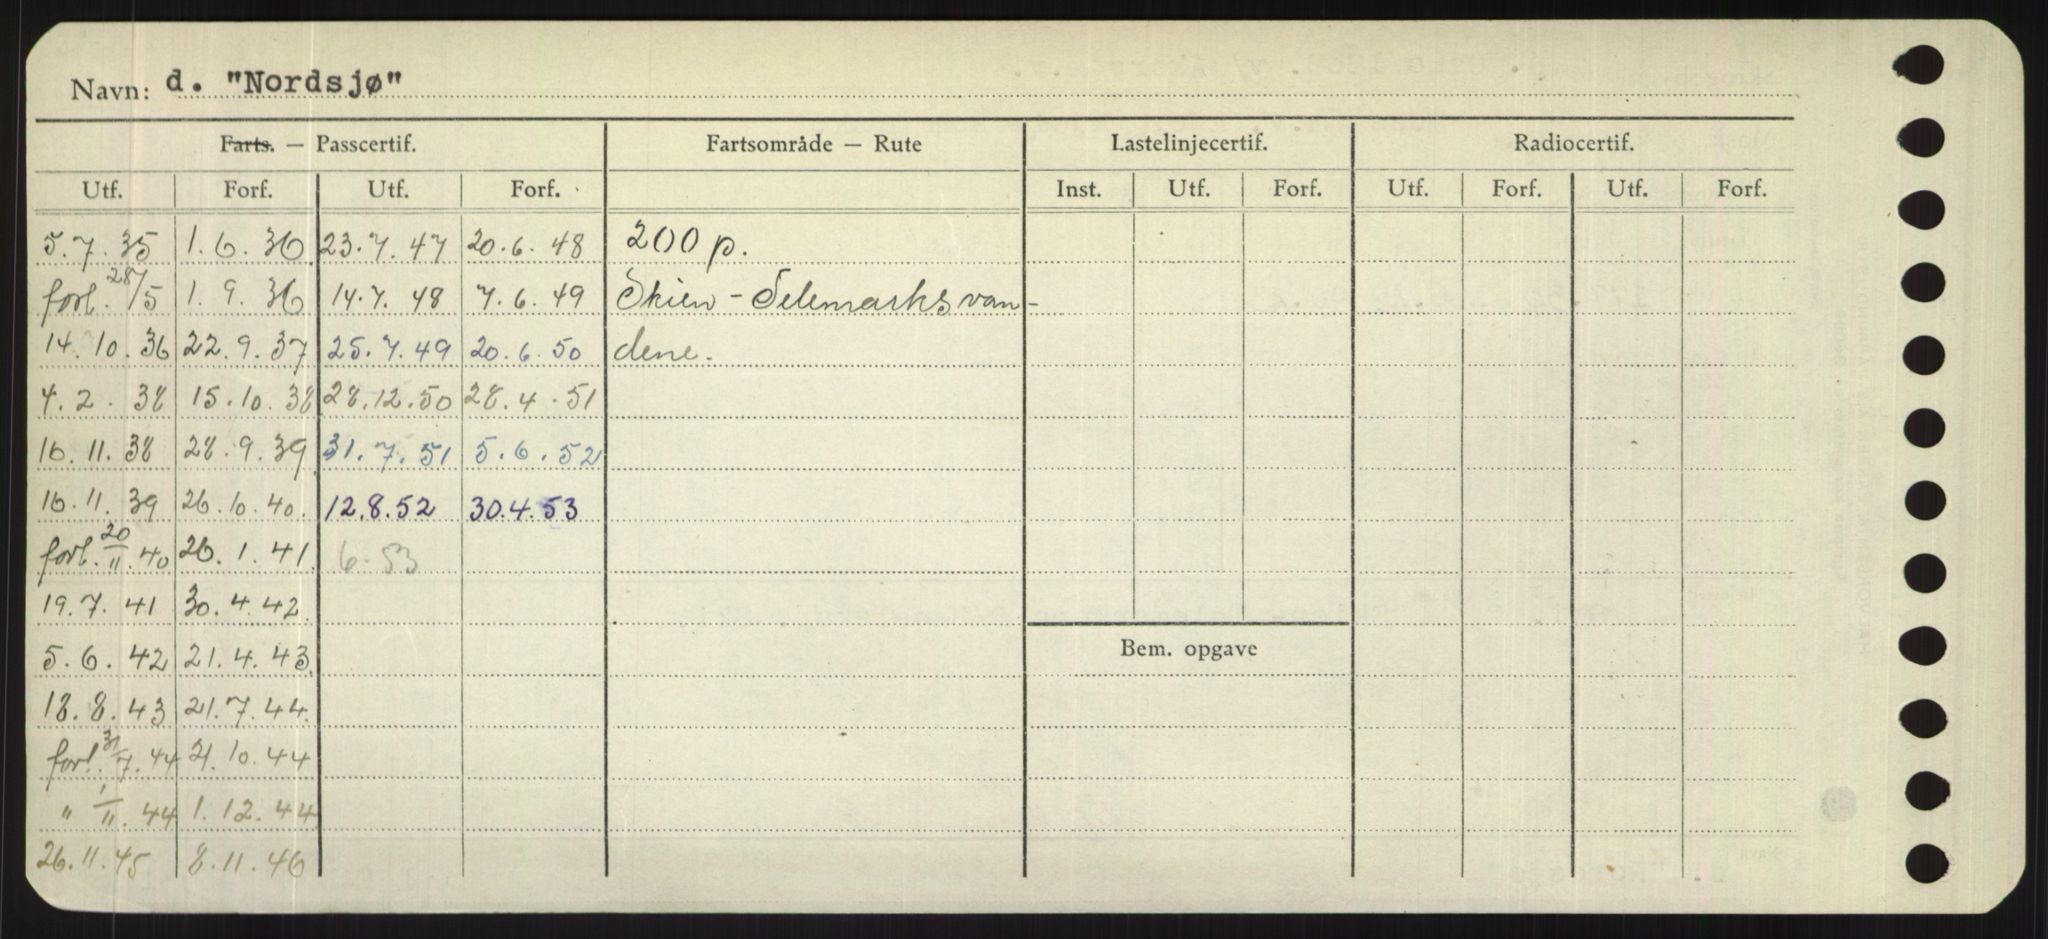 Navn: d. "Nordsjø"
Farts. — Passcertif. Fartsområde — Rute Lastelinjecertif. Radiocertif.
Utf. Forf. Utf. Forf. Inst. Utf. Forf. Utf. Forf. Utf. Forf.
5.7.35 1.6.36 23.7.47 20.6.48 200 p.
forl. 28/5 1.9.36 14.7.48 7.6.49 Skien - Telemarksvan-
14.10.36 22.9.37 25.7.49 20.6.50 dene.
4.2.38 15.10.38 28.12.50 28.4.51
16.11.38 28.9.39 31.7.51 5.6.52
16.11.39 26.10.40. 12.8.52 30.4.53
forl. 20/11.40 26.1.41 6.53
19.7.41 30.4.42
5.6.42 21.4.43 Bem. opgave
18.8.43 21.7.44.
forl. 31/7.44 21.10.44
" 1/11.44 1.12.44
26.11.45 8.11.46